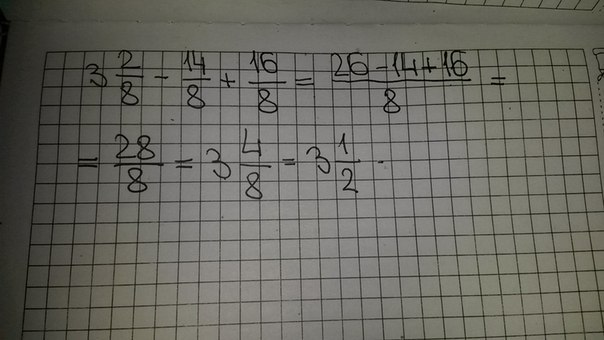 3 2/8 - 14/8 + 16/8 = 26-14+16/8 =
= 28/8 = 3 4/8 = 3 1/2 .